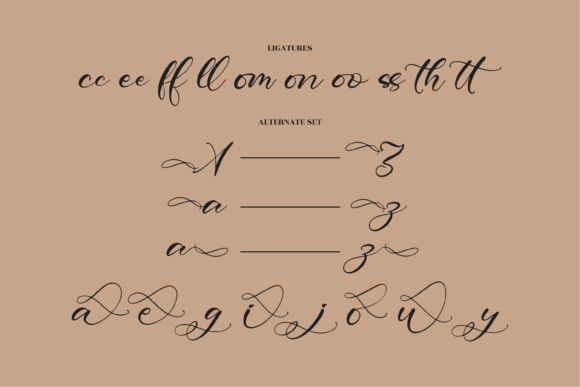 LIGATURES
cc ee ff ll om on oo ss th tt
ALTERNATE SET
A Z
a z
a z
a e g i j o u y